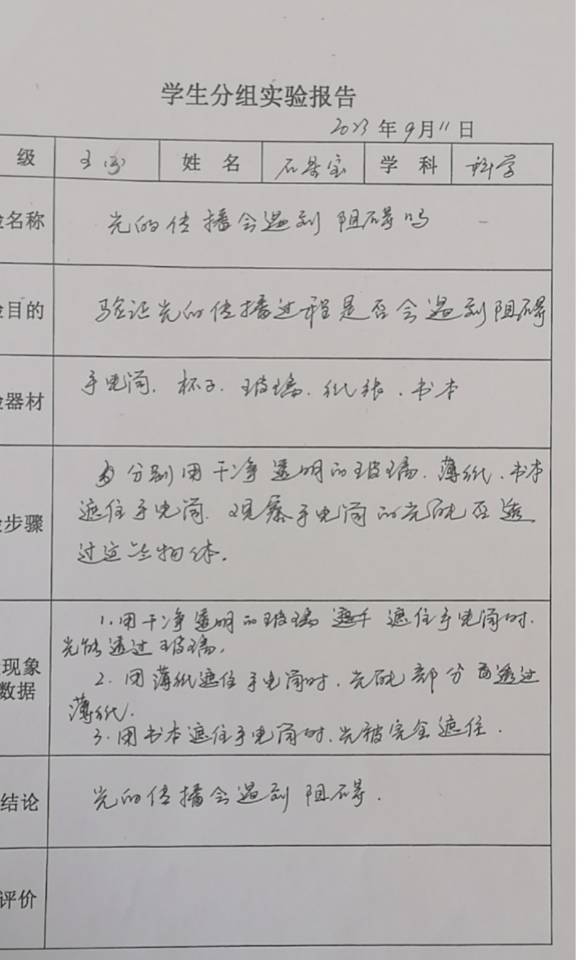 学生分组实验报告
2023年9月11日
级 姓名 石景宝 学科 科学
名称 光的传播会遇到阻碍吗
目的 验证光的传播过程是否会遇到阻碍
器材 手电筒、杯子、玻璃、纸张、书本
分别用干净透明的玻璃、薄纸、书本
步骤 遮住手电筒,观察手电筒的光能否透
过这些物体。
1.用干净透明的玻璃 遮住手电筒时,
现象 光能透过玻璃。
数据 2.用薄纸遮住手电筒时,光能部分透过
薄纸.
3.用书本遮住手电筒时,光被完全遮住.
结论 光的传播会遇到阻碍.
评价